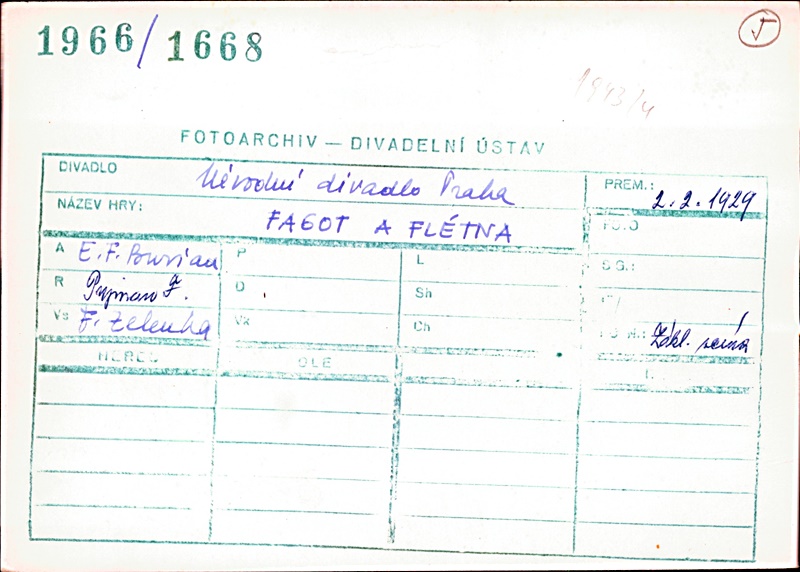 1966/1668
5
1943/4
FOTOARCHIV — DIVADELNÍ ÚSTAV
DIVADLO Národní divadlo Praha PREM.: 2.2.1929
NÁZEV HRY: FAGOT A FLÉTNA
A E.F. Burian P L
R Pujman F. D Sh
Vs F. Zelenka Vk Ch Zákl. scéna
HEREC